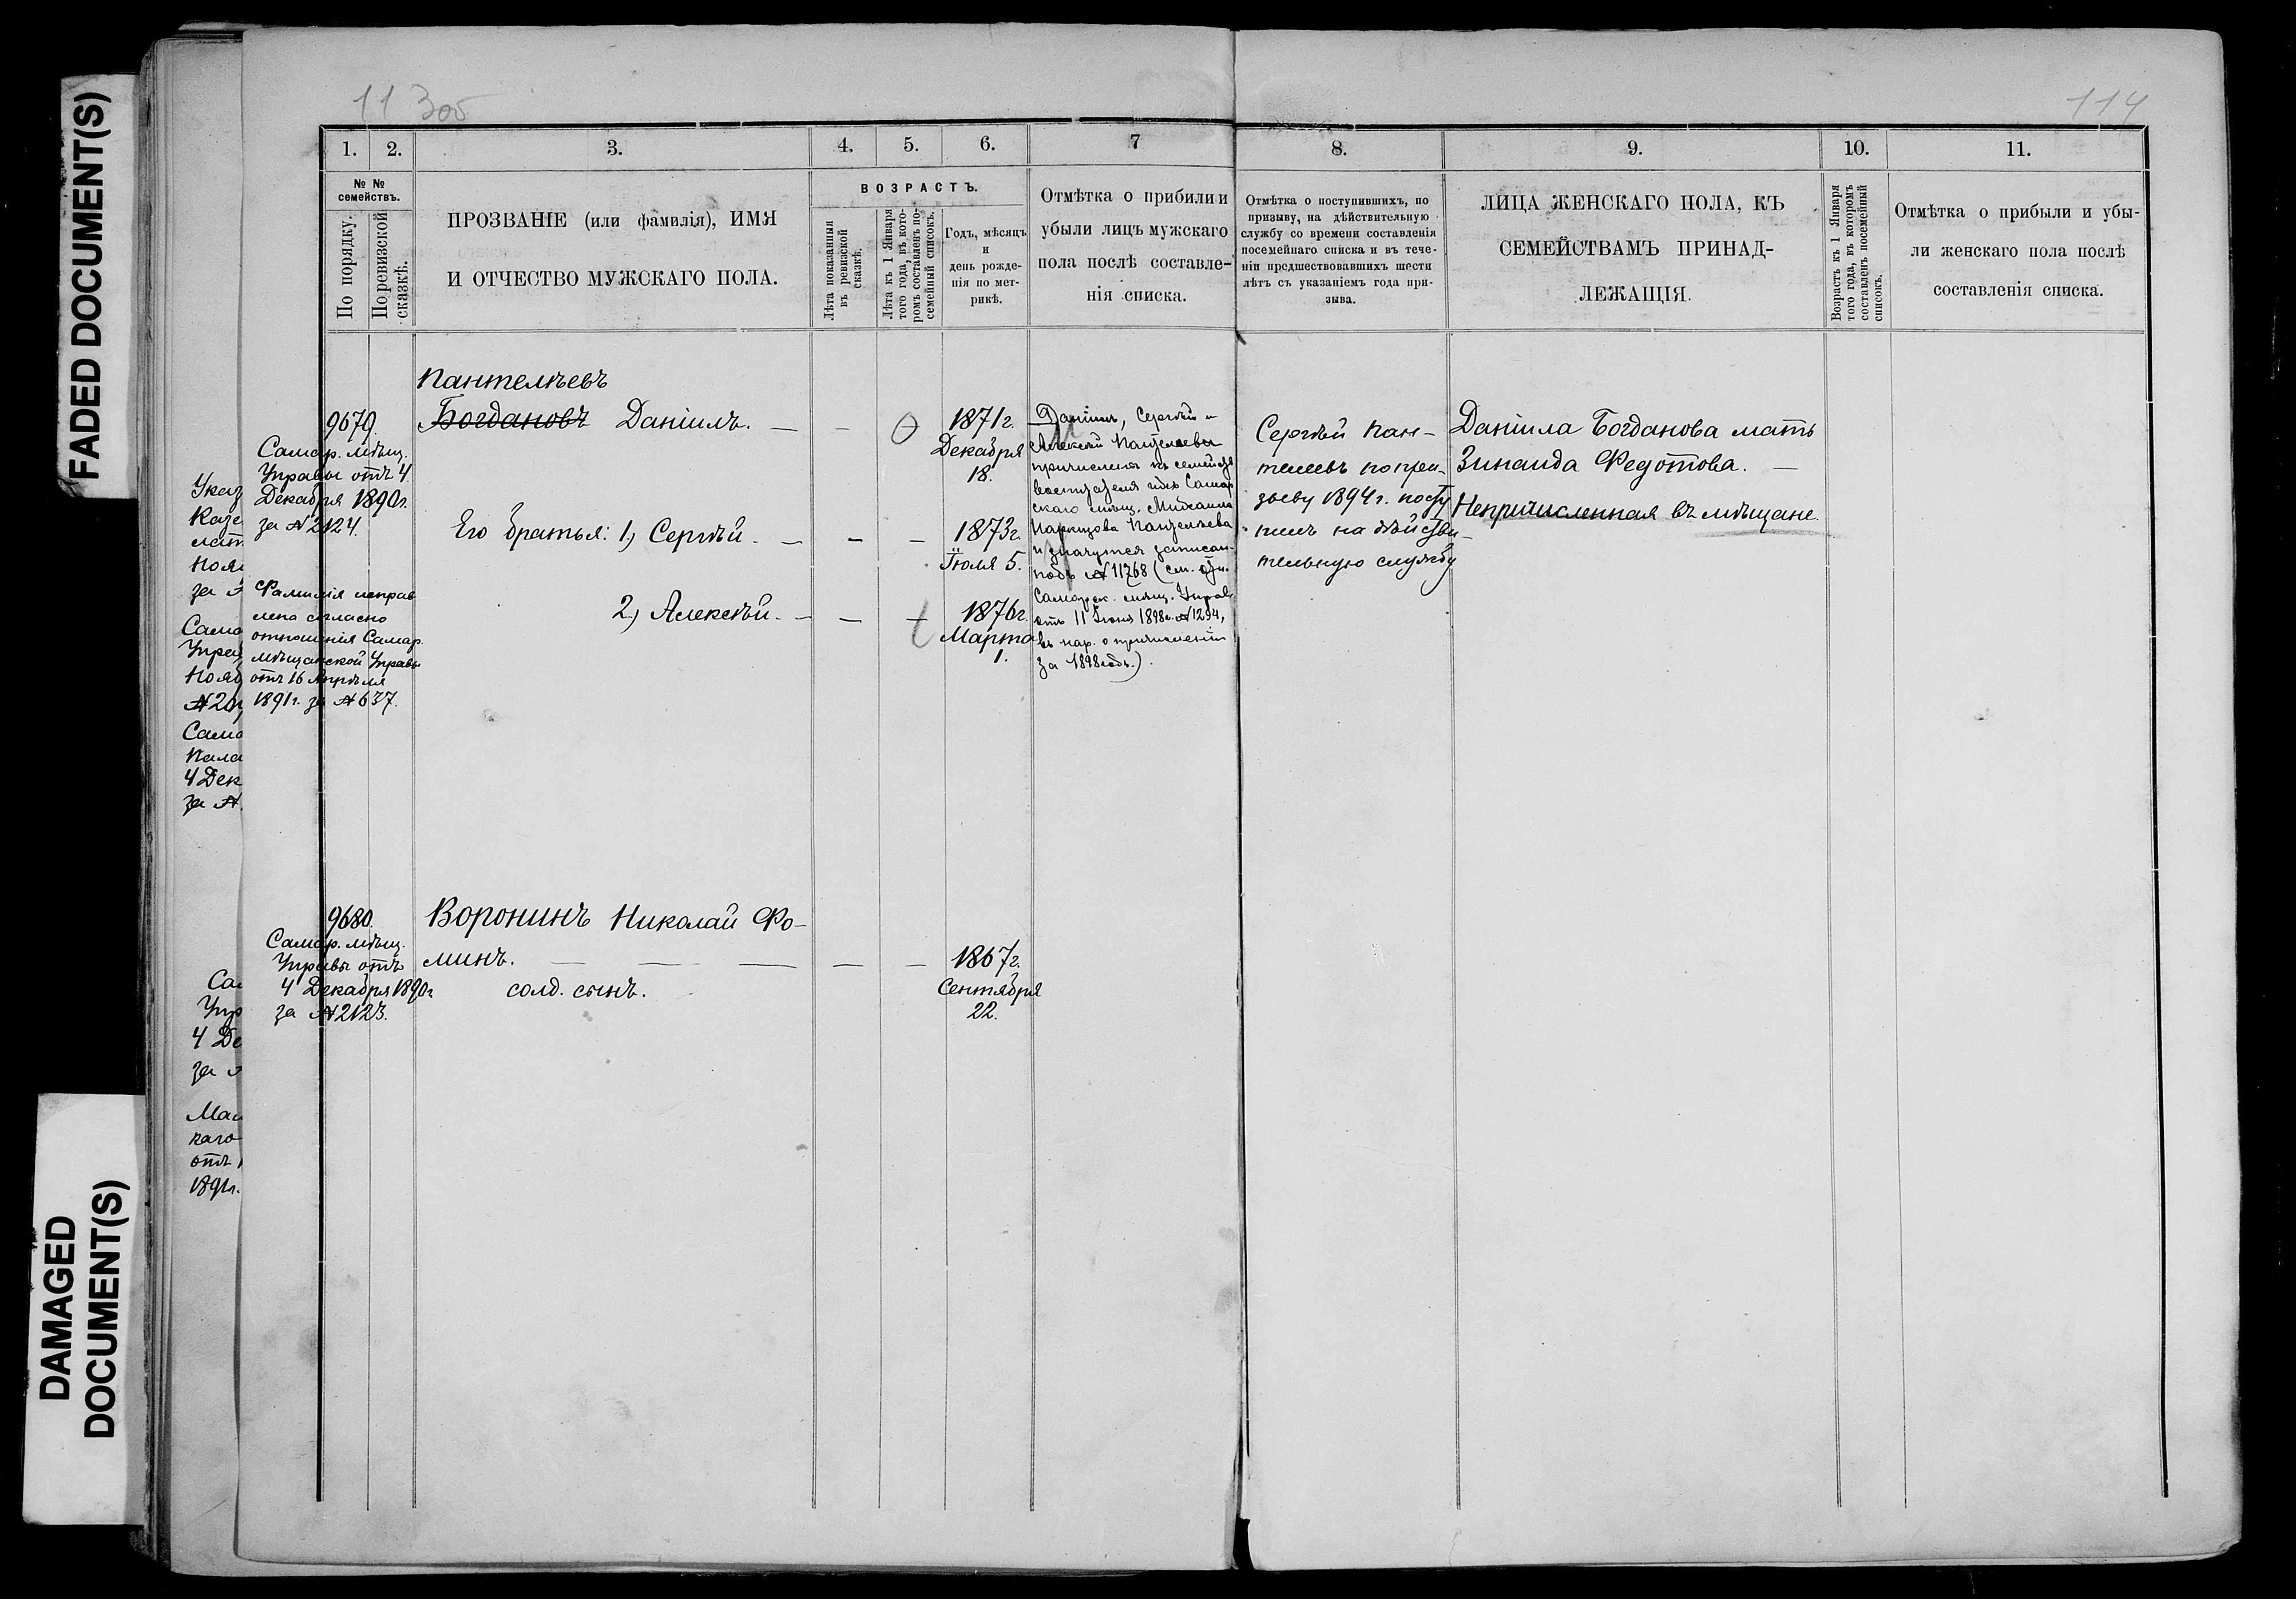 FADED DOCUMENT(S)
DAMAGED
DOCUMENT(S)
113об
114
1.
2.
3.
4.
5.
6.
7
8.
9.
10.
11.
№ №
семействъ.
По порядку.
По ревизской
сказкѣ.
ПРОЗВАНІЕ (или фамилія), ИМЯ
И ОТЧЕСТВО МУЖСКАГО ПОЛА.
ВОЗРАСТЪ.
Лѣта показанныя
въ ревизской
сказкѣ.
Лѣта къ 1 Января
того года, въ кото-
ромъ составленъ по-
семейный списокъ.
Годъ, мѣсяцъ
и
день рожде-
нія по мет-
рикѣ.
Отмѣтка о прибыли и
убыли лицъ мужскаго
пола послѣ составле-
нія списка.
Отмѣтка о поступившихъ, по
призыву, на дѣйствительную
службу со времени составленія
посемейнаго списка и въ тече-
ніи предшествовавшихъ шести
лѣтъ съ указаніемъ года при-
зыва.
ЛИЦА ЖЕНСКАГО ПОЛА, КЪ
СЕМЕЙСТВАМЪ ПРИНАД-
ЛЕЖАЩІЯ.
Возрастъ къ 1 Января
того года, въ которомъ
составленъ посемейный
списокъ.
Отмѣтка о прибыли и убы-
ли женскаго пола послѣ
составленія списка.
9679.
Самар. мѣщ.
Управы отъ 4.
Декабря 1890г.
за №2124.
Фамилія исправ
лена согласно
отношенія Самар.
мѣщанской Управы
отъ 16 Апрѣля
1891г. за №637.
Пантелѣевъ
Богдановъ Даніилъ. —
Его братья: 1, Сергѣй. —
2, Алексѣй. —
1871г.
Декабря
18.
1873г.
Іюля 5.
1876г.
Марта
1.
Даніилъ, Сергѣй и
Алексѣй Пантелеевы
причислены къ семейству
воспитателя ихъ Самар
скаго мѣщ. Михаила
Пантелѣева
и значутся записан.
подъ №11268 (см. отн.
Самарск. мѣщ. Управ.
отъ 11 Іюня 1898г. №1294,
въ нар. о причисленіи
за 1898годъ.).
Сергѣй Пан-
телеевъ по при
зыву 1894г. посту
пилъ на дѣйстви-
тельную службу
Даніила Богданова мать
Зинаида Федотова. —
Непричисленная въ мѣщане.
9680.
Самар. мѣщ.
Управы отъ
4 Декабря 1890г
за №2123.
Воронинъ Николай Фо-
минъ.
солд. сынъ.
1867г.
Сентября
22.
Указ
Казе
лат
Нояб
за №
Само
Упра
Нояб
№20
Сама
Пала
4 Дек
за №.
Са
Упр
4 Де
за №
каго
отъ
1891г.